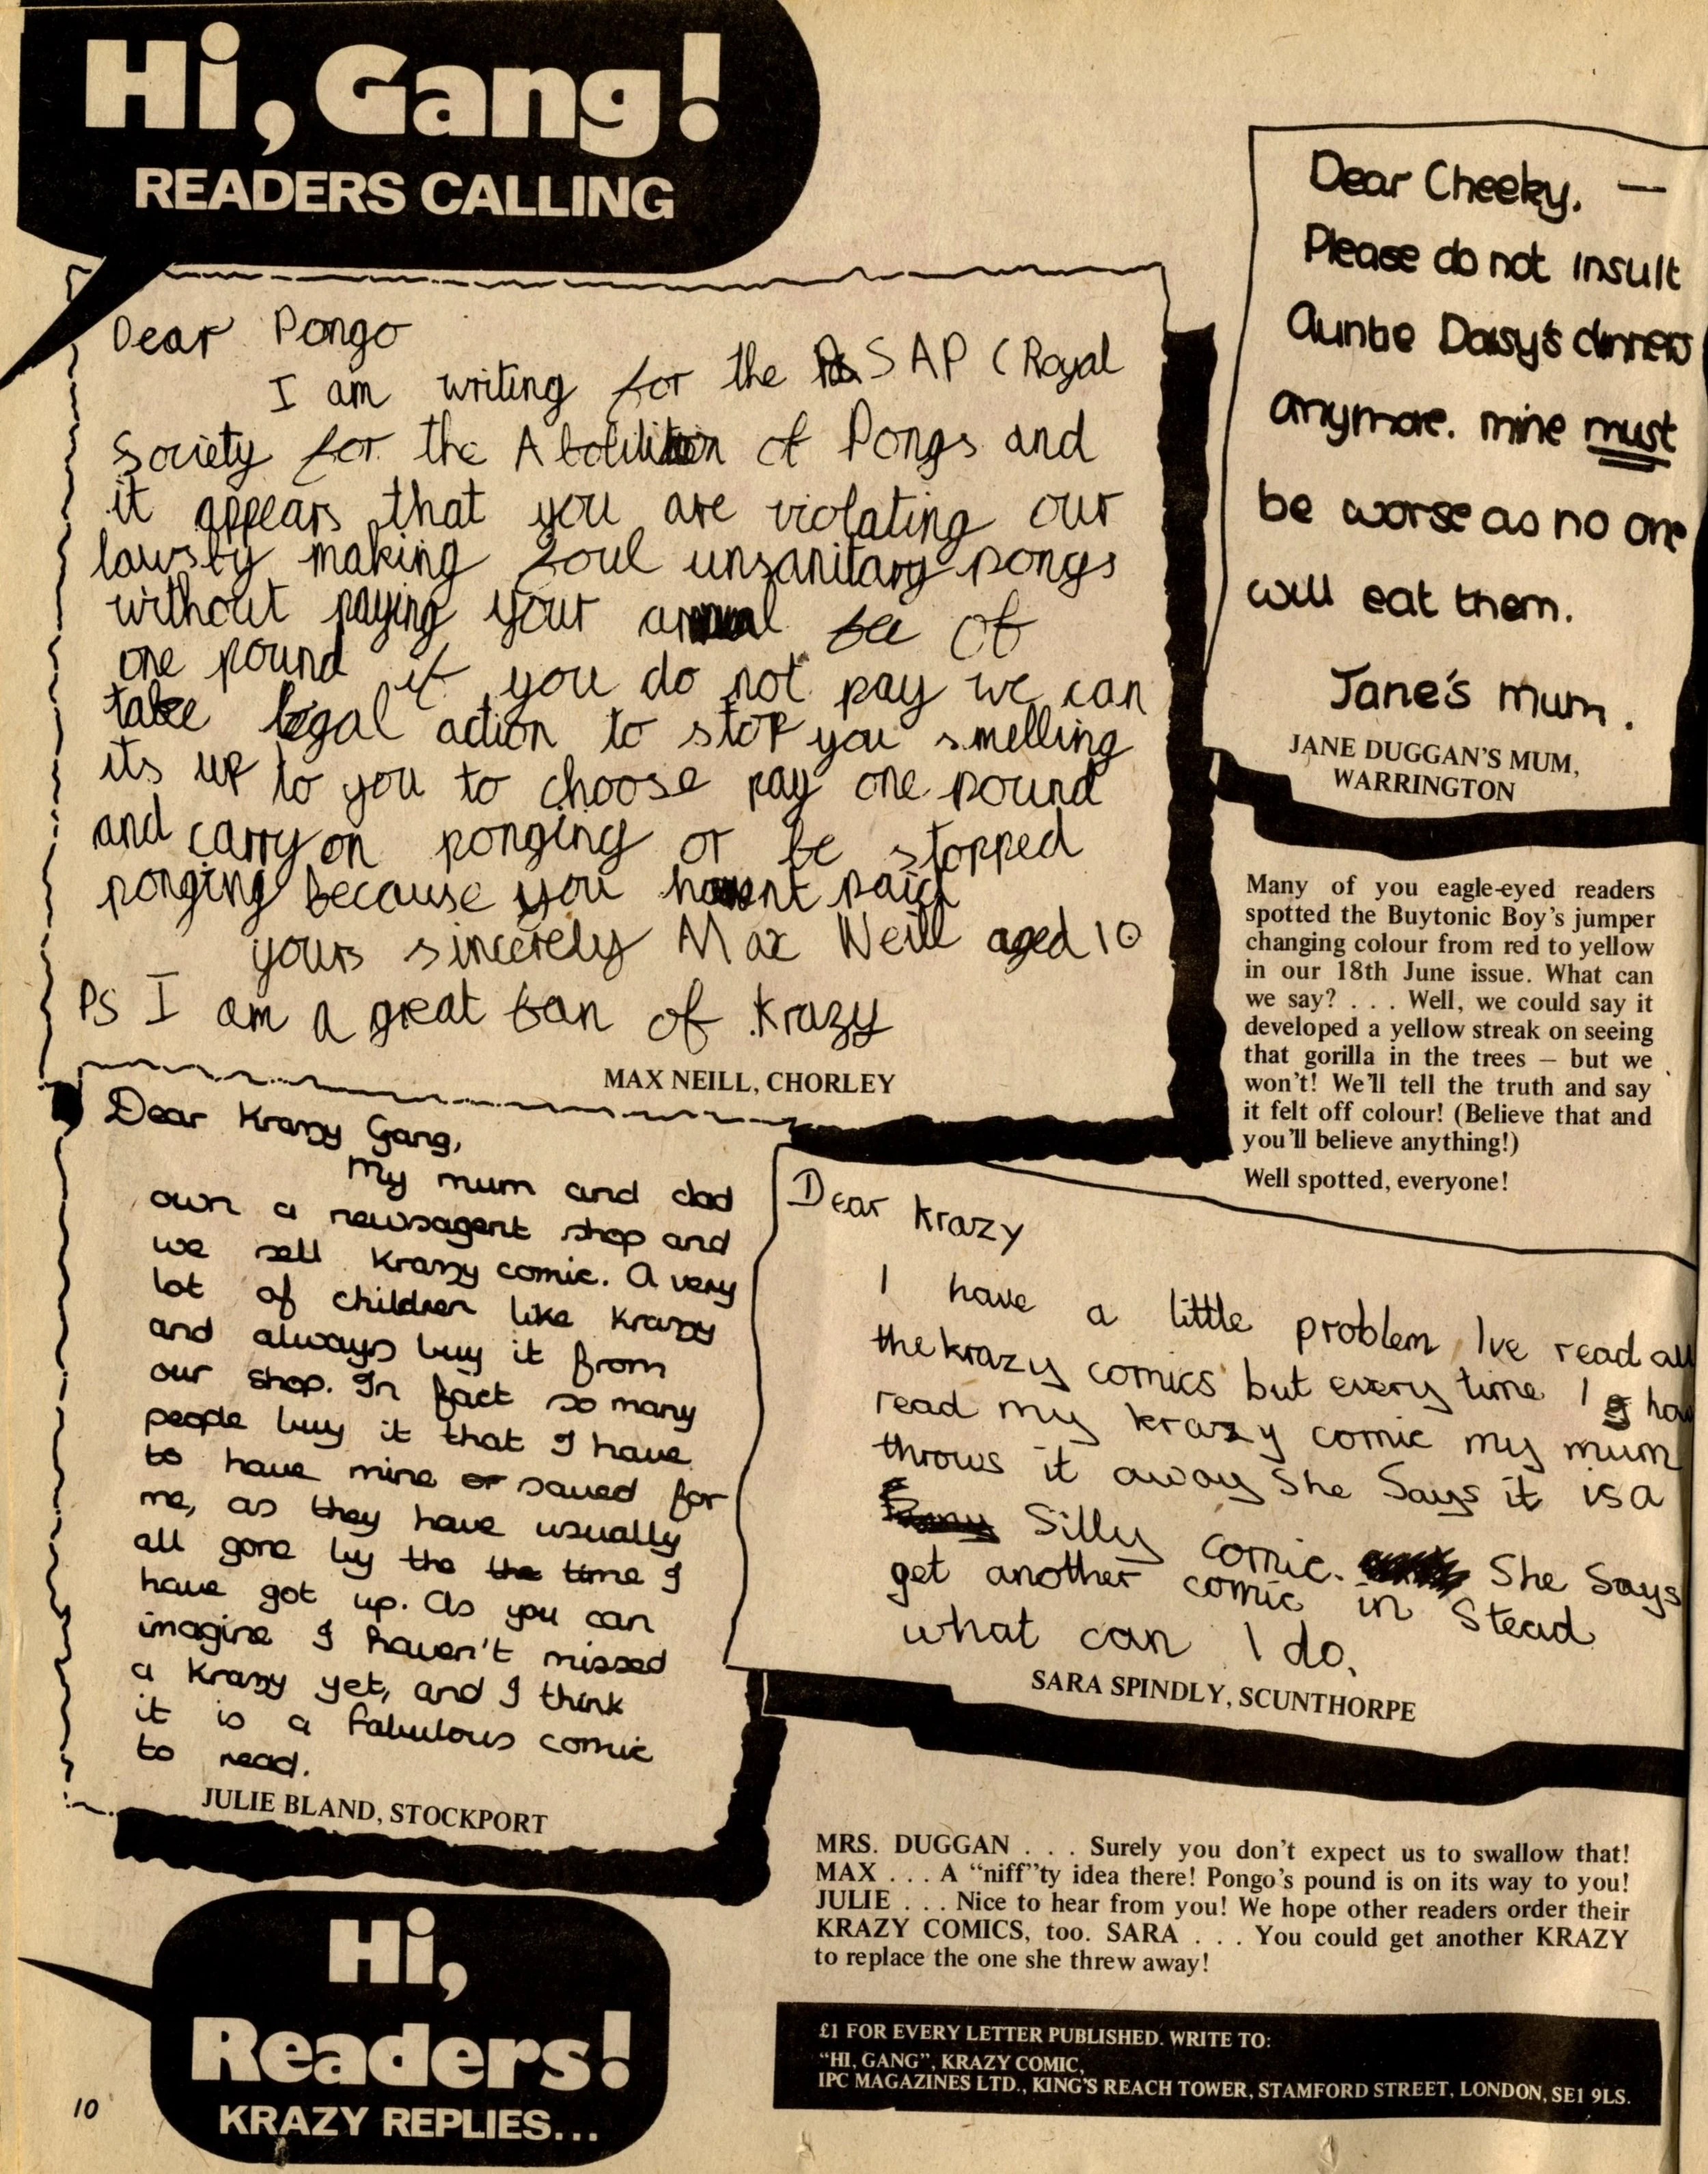 Hi, Gang!
READERS CALLING
Dear Pongo
I am writing for the R S A P ( Royal
Society for the Abolilition of Pongs and
it appears that you are violating our
laws by making foul unsanitary pongs
without paying your annual fee of
one pound if you do not pay we can
take legal action to stop you smelling
its up to you to choose pay one pound
and carry on ponging or be stopped
ponging because you havent paid
yours sincerely Max Neill aged 10
PS I am a great fan of Krazy
MAX NEILL, CHORLEY
Dear Cheeky, —
Please do not insult
Auntie Daisy's dinners
anymore. mine must
be worse as no one
will eat them.
Jane's mum.
JANE DUGGAN'S MUM,
WARRINGTON
Many of you eagle-eyed readers
spotted the Buytonic Boy's jumper
changing colour from red to yellow
in our 18th June issue. What can
we say? . . . Well, we could say it
developed a yellow streak on seeing
that gorilla in the trees – but we
won't! We'll tell the truth and say
it felt off colour! (Believe that and
you'll believe anything!)
Well spotted, everyone!
Dear Krazy Gang,
My mum and dad
own a newsagent shop and
we sell Krazy comic. A very
lot of children like Krazy
and always buy it from
our shop. In fact so many
people buy it that I have
to have mine or saved for
me, as they have usually
all gone by the the time I
have got up. As you can
imagine I haven't missed
a Krazy yet, and I think
it is a fabulous comic
to read.
JULIE BLAND, STOCKPORT
Dear Krazy
I have a little problem Ive read all
the krazy comics but every time I
read my krazy comic my mum
throws it away She Says it is a
Silly comic. She Says
get another comic in Stead
what can I do.
SARA SPINDLY, SCUNTHORPE
MRS. DUGGAN . . . Surely you don't expect us to swallow that!
MAX . . . A “niff”ty idea there! Pongo's pound is on its way to you!
JULIE . . . Nice to hear from you! We hope other readers order their
KRAZY COMICS, too. SARA . . . You could get another KRAZY
to replace the one she threw away!
Hi,
Readers!
KRAZY REPLIES...
£1 FOR EVERY LETTER PUBLISHED. WRITE TO:
“HI, GANG”, KRAZY COMIC,
IPC MAGAZINES LTD., KING'S REACH TOWER, STAMFORD STREET, LONDON, SE1 9LS.
10